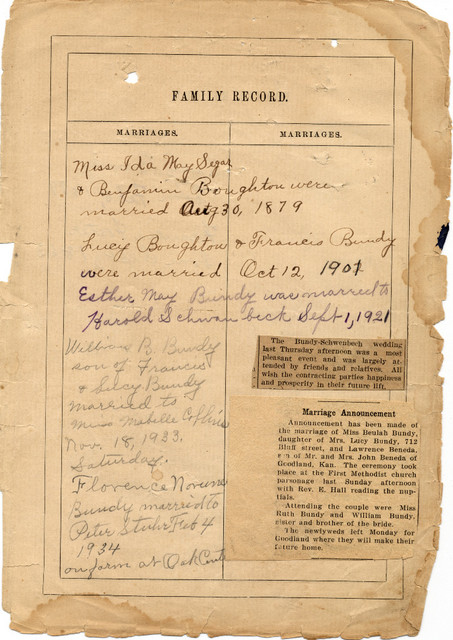 FAMILY RECORD.
MARRIAGES.
MARRIAGES.
Miss Ida May Segar
& Benjamin Boughton were
married Aug 30, 1879
Lucy Boughton & Francis Bundy
were married Oct 12, 1901
Esther May Bundy was married to
Harold Schwanbeck Sept 1, 1921
William B. Bundy
son of Francis
& Lucy Bundy
married to
Miss Mabelle Collins
Nov. 18, 1933.
Saturday.
Florence Norene
Bundy married to
Peter Stuhr Feb 4
1934
on farm at Oak
The Bundy-Schwenbech wedding
last Thursday afternoon was a most
pleasant event and was largely at-
tended by friends and relatives. All
wish the contracting parties happiness
and prosperity in their future lift.
Marriage Announcement
Announcement has been made of
the marriage of Miss Beulah Bundy,
daughter of Mrs. Lucy Bundy, 712
Bluff street, and Lawrence Beneda,
son of Mr. and Mrs. John Beneda of
Goodland, Kan. The ceremony took
place at the First Methodist church
parsonage last Sunday afternoon
with Rev. E. Hall reading the nup-
tials.
Attending the couple were Miss
Ruth Bundy and William Bundy,
sister and brother of the bride.
The newlyweds left Monday for
Goodland where they will make their
future home.